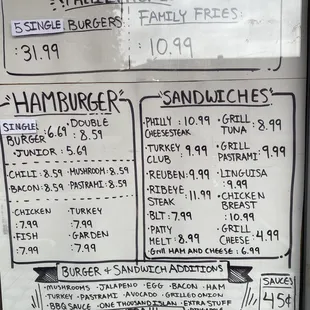 5 SINGLE BURGERS: FAMILY FRIES:
:31.99 :10.99
HAMBURGER
SINGLE BURGER :6.69 · DOUBLE : 8.59
· JUNIOR : 5.69
· CHILI : 8.59 · MUSHROOM : 8.59
· BACON : 8.59 · PASTRAMI : 8.59
· CHICKEN : 7.99 · TURKEY : 7.99
· FISH : 7.99 · GARDEN : 7.99
SANDWICHES
· PHILLY CHEESESTEAK : 10.99 · GRILL TUNA : 8.99
· TURKEY CLUB : 9.99 · GRILL PASTRAMI : 9.99
· REUBEN : 9.99 · LINGUISA : 9.99
· RIBEYE STEAK : 11.99 · CHICKEN BREAST : 10.99
· BLT : 7.99
· PATTY MELT : 8.99 · GRILL CHEESE : 4.99
· Grill HAM AND CHEESE : 6.99
BURGER + SANDWICH ADDITIONS
· MUSHROOMS · JALAPENO · EGG · BACON · HAM
· TURKEY · PASTRAMI · AVOCADO · GRILLED ONION
· BBQ SAUCE · ONE THOUSAND ISLAN · EXTRA STUFF
SAUCES
45¢